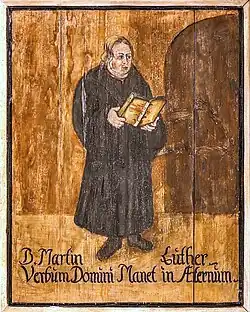 D. Martin Luther
Verbum Domini Manet in Æternum.